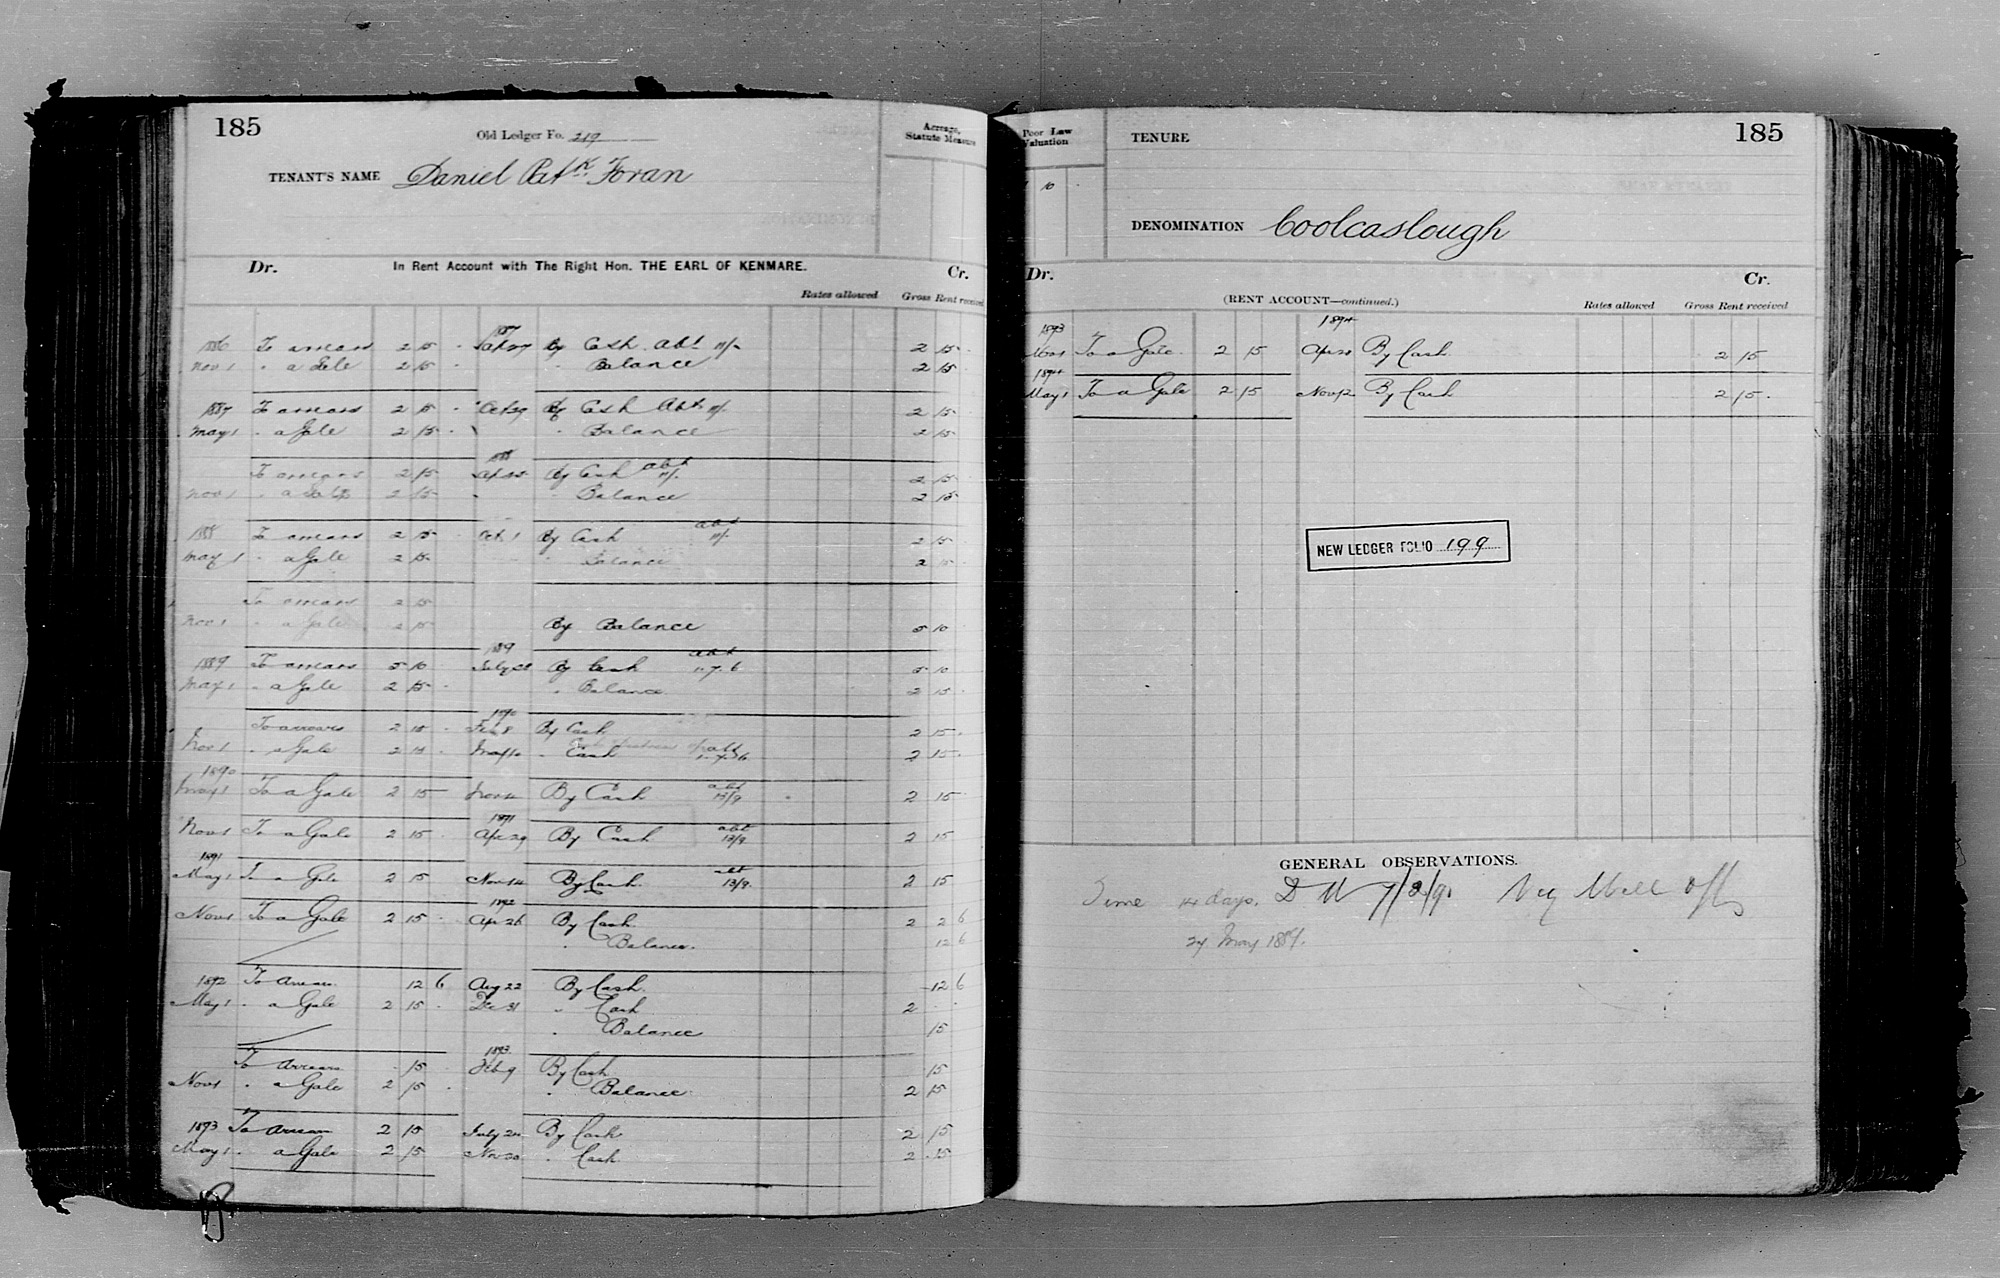 185
Old Ledger Fo. 219
TENANT'S NAME Daniel Patk Foran
Acreage, Statute Measure
Dr. In Rent Account with The Right Hon. THE EARL OF KENMARE. Cr.
Rates allowed Gross Rent received
1887
1886 To arrears 2 15 By Cash abt 11/- 2 15
Nov 1 " a Gale 2 15 " Balance 2 15
1887 To arrears 2 15 Oct 29 By Cash Abt 11/- 2 15
May 1 " a Gale 2 15 " Balance 2 15
1888
To arrears 2 15 By Cash abt 11/- 2 15
Nov 1 " a Gale 2 15 " Balance 2 15
1888 To arrears 2 15 Oct 1 By Cash abt 11/- 2 15
May 1 " a Gale 2 15 " Balance 2 15
To arrears 2 15
Nov 1 " a Gale 2 15 By Balance 5 10
1889
1889 To arrears 5 10 July By Cash abt 1.7.6 5 10
May 1 " a Gale 2 15 " Balance 2 15
1890
To arrears 2 15 Feb 8 By Cash 2 15
Nov 1 " a Gale 2 15 May 10 " Cash abt 1.7.6 2 15
1890
May 1 To a Gale 2 15 Nov By Cash abt 13/9 2 15
1891
Nov 1 To a Gale 2 15 Apr 29 By Cash abt 13/9 2 15
1891
May 1 To a Gale 2 15 Nov 14 By Cash abt 13/9 2 15
1892
Nov 1 To a Gale 2 15 Apr 26 By Cash 2 2 6
" Balance 12 6
1892 To arrears 12 6 Aug 22 By Cash 12 6
May 1 " a Gale 2 15 Dec 31 " Cash 2
" Balance 15
1893
To arrears 15 Feb 9 By Cash 15
Nov 1 " a Gale 2 15 " Balance 2 15
1893 To arrears 2 15 July 24 By Cash 2 15
May 1 " a Gale 2 15 Nov 20 " Cash 2 15
Poor Law Valuation
10
TENURE
185
DENOMINATION Coolcaslough
Dr. (RENT ACCOUNT—continued.) Cr.
Rates allowed Gross Rent received
1893 1894
Nov 1 To a Gale 2 15 Apr 28 By Cash 2 15
1894
May 1 To a Gale 2 15 Nov 12 By Cash 2 15
NEW LEDGER FOLIO 199
GENERAL OBSERVATIONS.
Time 14 days.
24 May 1889.